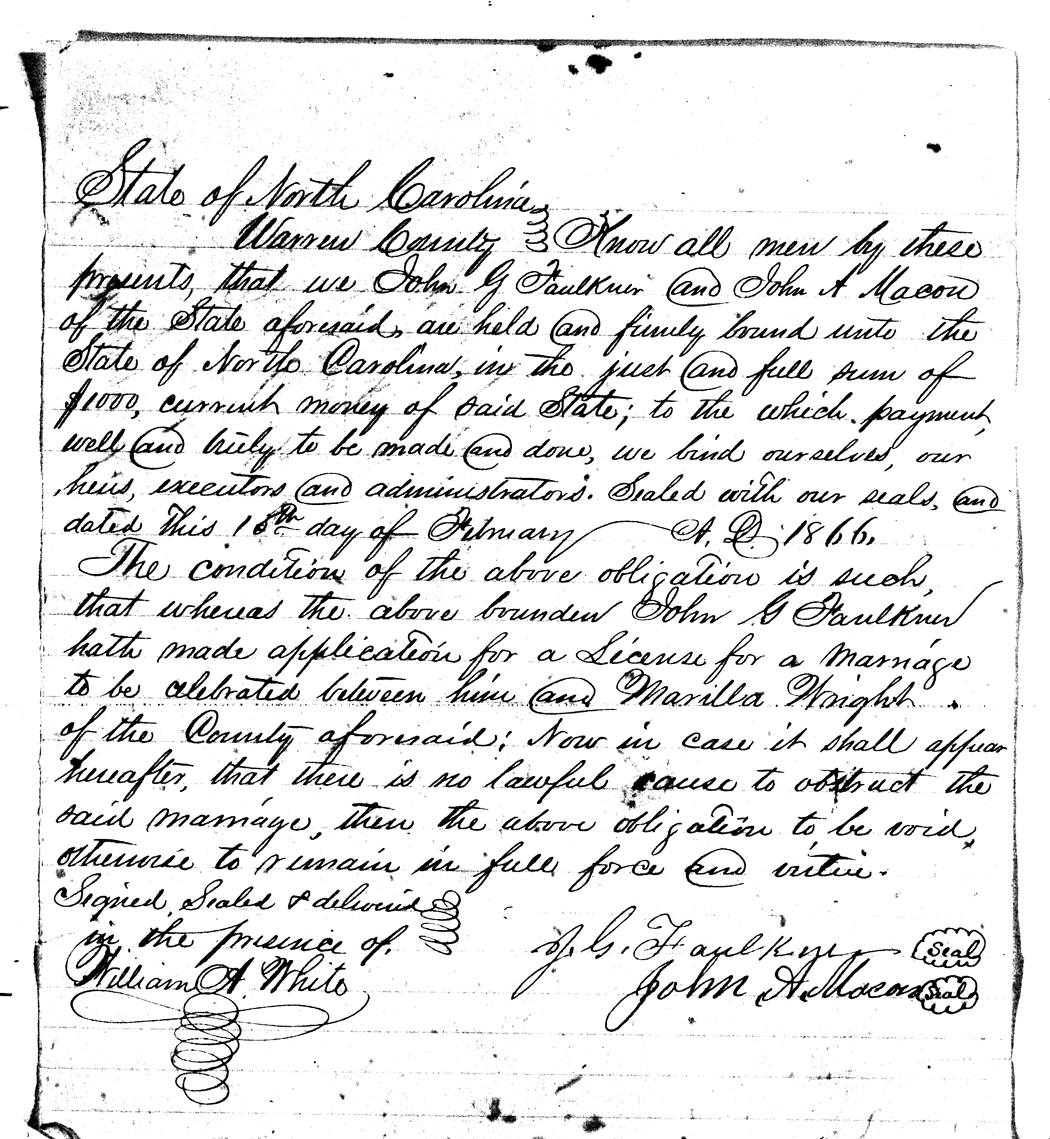 State of North Carolina
Warren County Know all men by these
presents, that we John G Faulkner and John A Macon
of the State aforesaid, are held and firmly bound unto the
State of North Carolina, in the just and full sum of
$1000, current money of said State; to the which payment,
well and truly to be made and done, we bind ourselves, our
heirs, executors and administrators. Sealed with our seals, and
dated this day of February A. D. 1866.
The condition of the above obligation is such,
that whereas the above bounden John G Faulkner
hath made application for a License for a Marriage
to be celebrated between him and Marilla Wright.
of the County aforesaid; Now in case it shall appear
hereafter, that there is no lawful cause to obstruct the
said marriage, then the above obligation to be void,
otherwise to remain in full force and virtue.
Signed, Sealed & delivered
in the presence of. J. G. Faulkner Seal
William A. White John A. Macon Seal